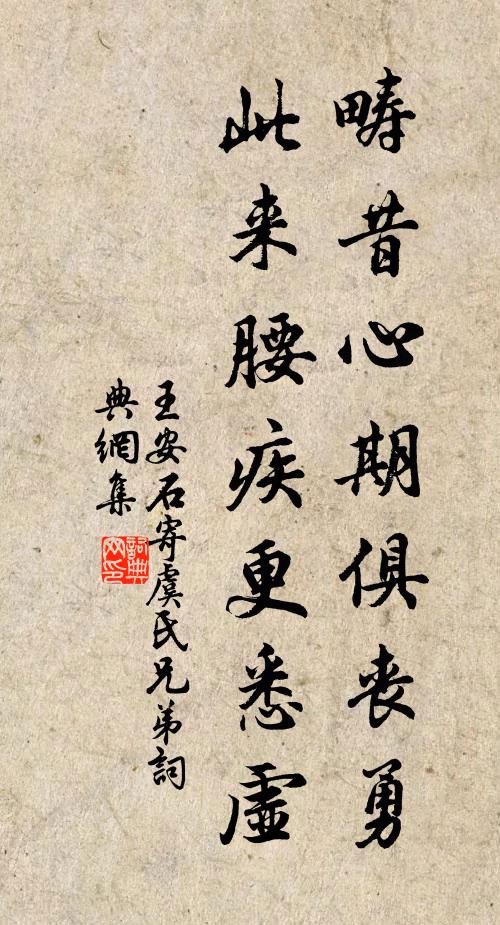 疇昔心期俱喪勇
此来腰疾更悉虛
王安石寄虞氏兄弟詞
典網集
詞典网印